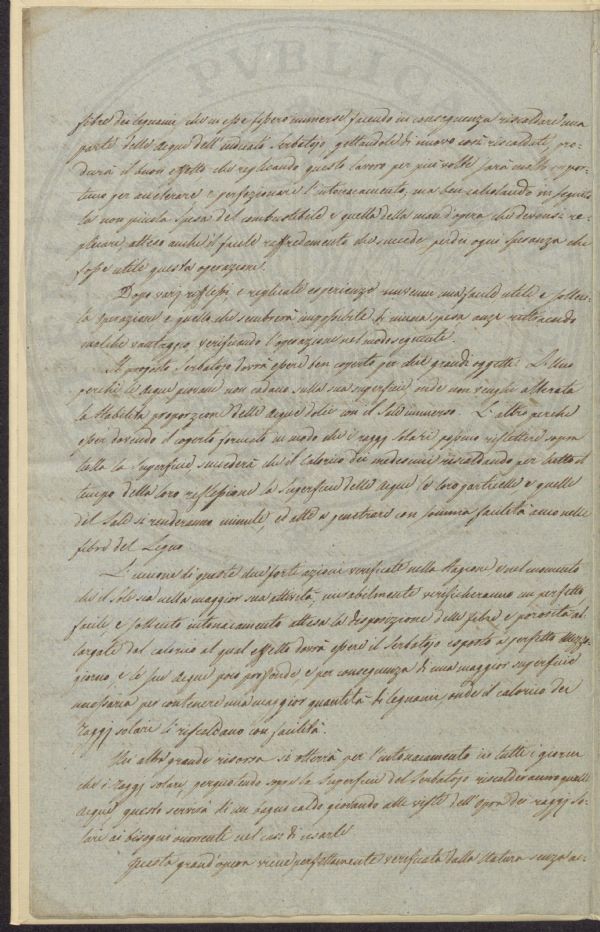 PVBLICA
fibre dei legnami, che in esse fossero immerse facendo in conseguenza riscaldare una
parte delle Acque dell'indicato Serbatojo gettandole di nuovo così riscaldate, pro-
durrà il buon effetto che replicando questo lavoro per più volte sarà molto oppor-
tuno per accelerare e perfezionare l'intonacamento, ma ben calcolando in seguito
la non piccola spesa del combustibile e quella della man d'opera che devonsi re-
plicare, atteso anche il facile raffredamento che succede perdesi ogni speranza che
fosse utile questa operazione.
Dopo varj riflessi e replicate esperienze una facile utile e solleci-
ta operazione e quella che sembrerà impossibile di niuna spesa anzi ritraendo
anche vantaggio verificando l'operazione nel modo seguente.
Il progetto Serbatojo dovrà essere ben coperto per due grandi oggetti. L'Uno
perchè le Acque piovane non cadano sulla sua superficie, onde non venghi alterata
la stabilita proporzione delle Acque dolci con il Sale immerso. L'altro perchè
esser dovendo il coperto formato in modo che i raggj solari possino riflettere sopra
tutta la Superficie succederà che il Calorico dei medesimi riscaldando per tutto il
tempo della loro riflessione la Superficie delle Acque le loro particelle e quelle
del Sale si renderanno minute, ed atte a penetrare con somma facilità anco nelle
fibre del Legno
L'unione di queste due forti azioni verificate nella Stagione e nel momento
che il Sole sia nella maggior sua attività, mirabilmente verificheranno un perfetto
facile, e sollecito intonacamento attesa la disposizione delle fibre e porosità al-
largate dal calorico al qual effetto dovrà essere il Serbatojo esposto a perfetto Mezzo-
giorno e le sue Acque poco profonde e per conseguenza di una maggior superficie
necessaria per contenere una maggior quantità di legnami, onde il calorico dei
raggj solari li riscaldano con facilità.
Un altra grande risorsa si otterrà per l'intonacamento in tutti i giorni
che i raggj solari, percuotendo sopra la Superficie del Serbatojo riscalderanno quelle
Acque, questo servirà di un bagno caldo giovando alle viste dell'opra dei raggj so-
lari ai bisogni occorrenti nel caso di usarle
Questa grand'opera viene perfettamente verificata dalla Natura senza al-